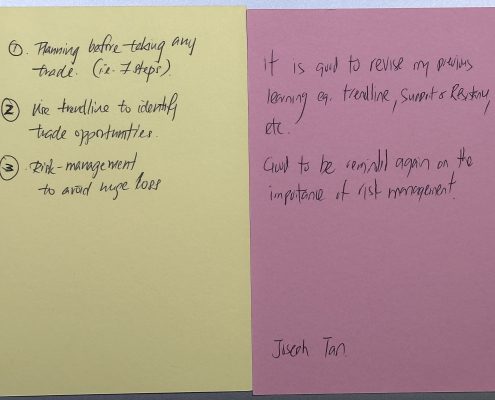 ① Planning before taking any
trade. (i.e. 7 steps).
② Use trendline to identify
trade opportunities.
③ Risk-management
to avoid huge loss
It is good to revise my previous
learning eg. trendline, Support & Resistany
etc.
Good to be remindd again on the
importance of risk management.
Joseph Tan